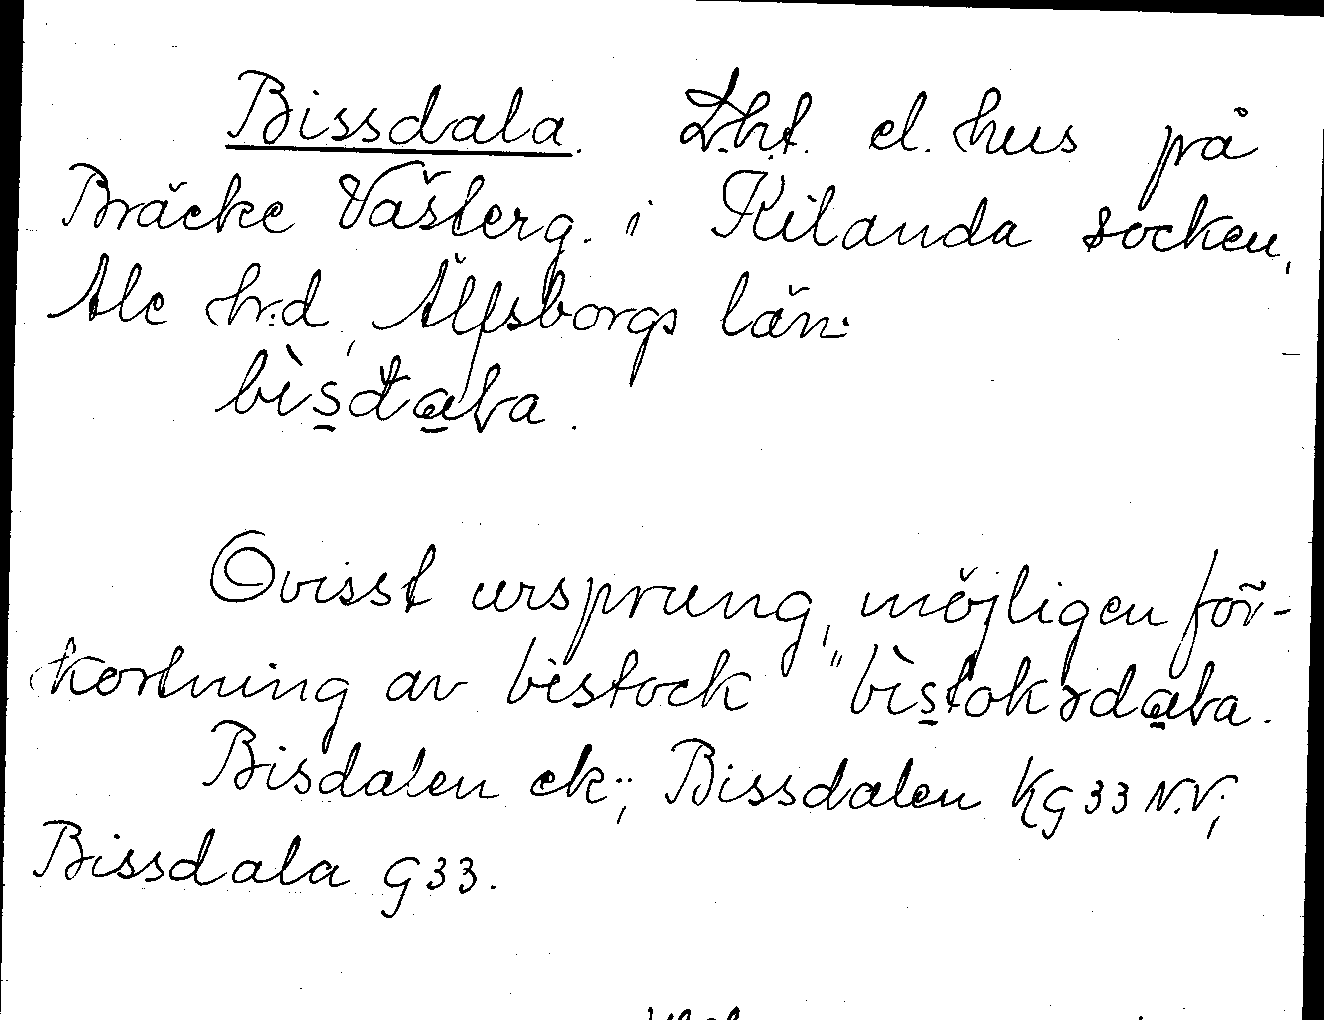 Bissdala. Lht. el. hus på
Bräcke Västerg. i Kilanda socken,
Ale hrd, Älfsborgs län.
bìs̱đa̱ɫa.
Ovisst ursprung, möjligen för-
kortning av bistock "bìs̱tokɜda̱ɫa.
Bisdalen ek.; Bissdalen KG33 N.V;
Bissdala G33.